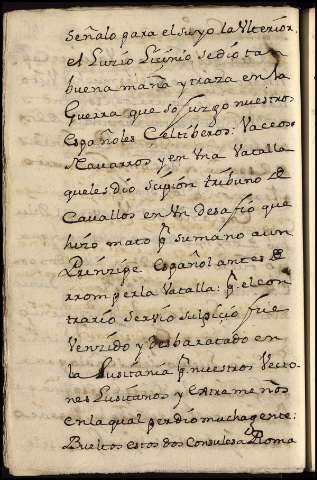 señalo para el suyo la Vlterior.
el Luzio Lizinio se dio ta
buena maña y traza en la
Guerra que sojuzgo nuestros
Españoles Celtiberos: Vaceos
Navarros y en Vna Vatalla
que les dio Szipion tribuno De
Cavallos en Vn desafio que
hizo mato pr. su mano a un
Prinzipe Español antes De
rromper la Vatalla: pr. el con
trario Servio Sulpicio fue
Venzido y desbaratado en
la Lusitania pr. nuestros Veto
nes Lusitanos y Extremeños
en la qual perdio mucha gente:
Bueltos estos dos Consules a Roma